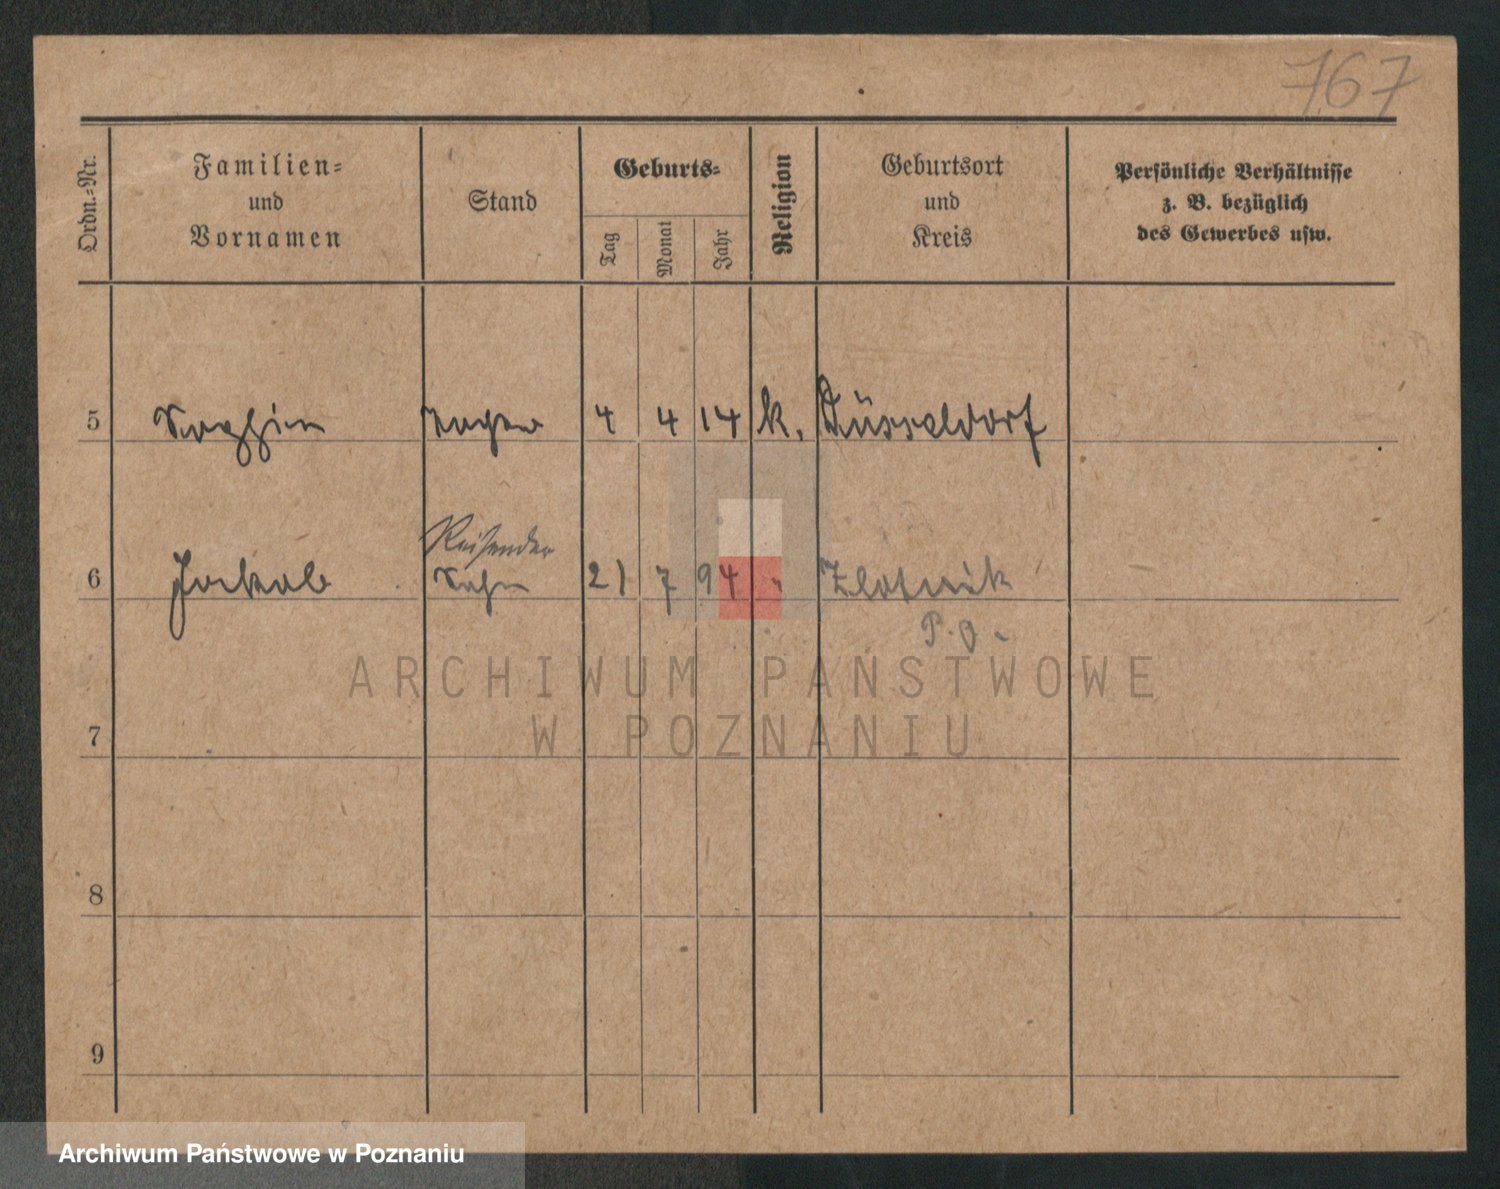 767
Ordn.=Nr.
Familien=
und
Vornamen
Stand
Geburts=
Tag
Monat
Jahr
Religion
Geburtsort
und
Kreis
Persönliche Verhältnisse
z. B. bezüglich
des Gewerbes usw.
5 Sophie Tochter 4 4 14 k. Düsseldorf
Reisender
6 Jakob Sohn 21 7 94 " Zlotnik
P. O.
ARCHIWUM PAŃSTWOWE
W POZNANIU
7
8
9
Archiwum Państwowe w Poznaniu